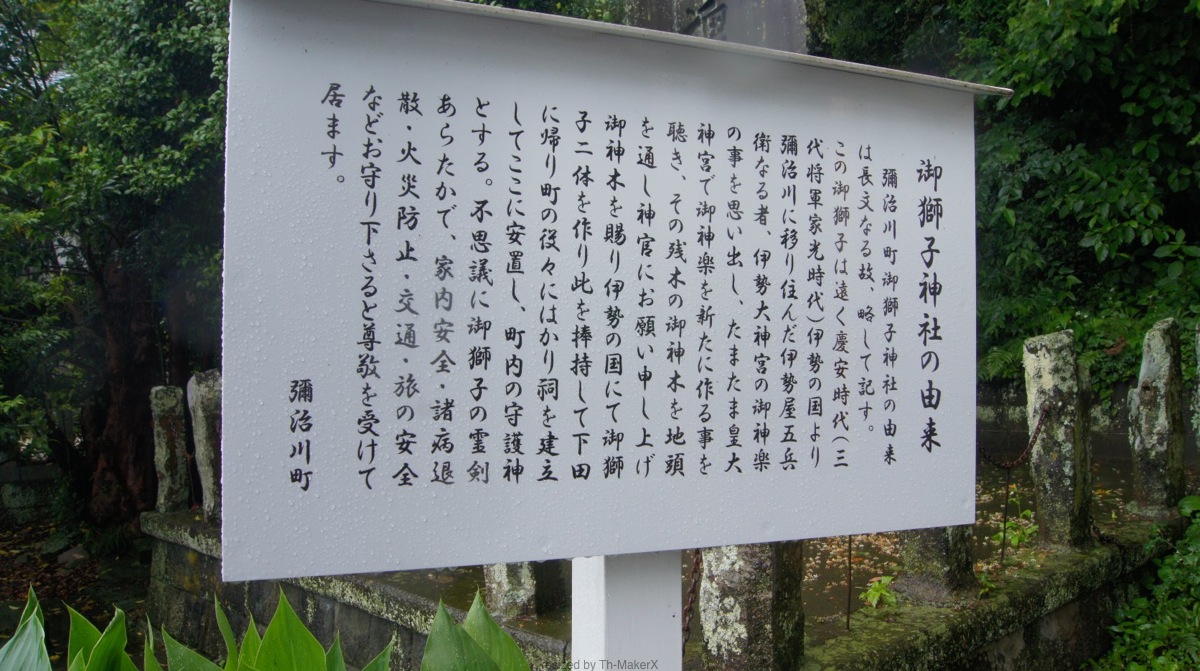 御獅子神社の由来
彌治川町御獅子神社の由来
は長文なる故、略して記す。
この御獅子は遠く慶安時代(三
代将軍家光時代)伊勢の国より
彌治川に移り住んだ伊勢屋五兵
衛なる者、伊勢大神宮の御神楽
の事を思い出し、たまたま皇大
神宮で御神楽を新たに作る事を
聴き、その残木の御神木を地頭
を通し神官にお願い申し上げ
御神木を賜り伊勢の国にて御獅
子二体を作り此を捧持して下田
に帰り町の役々にはかり祠を建立
してここに安置し、町内の守護神
とする。不思議に御獅子の霊剣
あらたかで、家内安全・諸病退
散・火災防止・交通・旅の安全
などお守り下さると尊敬を受けて
居ます。
彌治川町
Resized by Th-MakerX